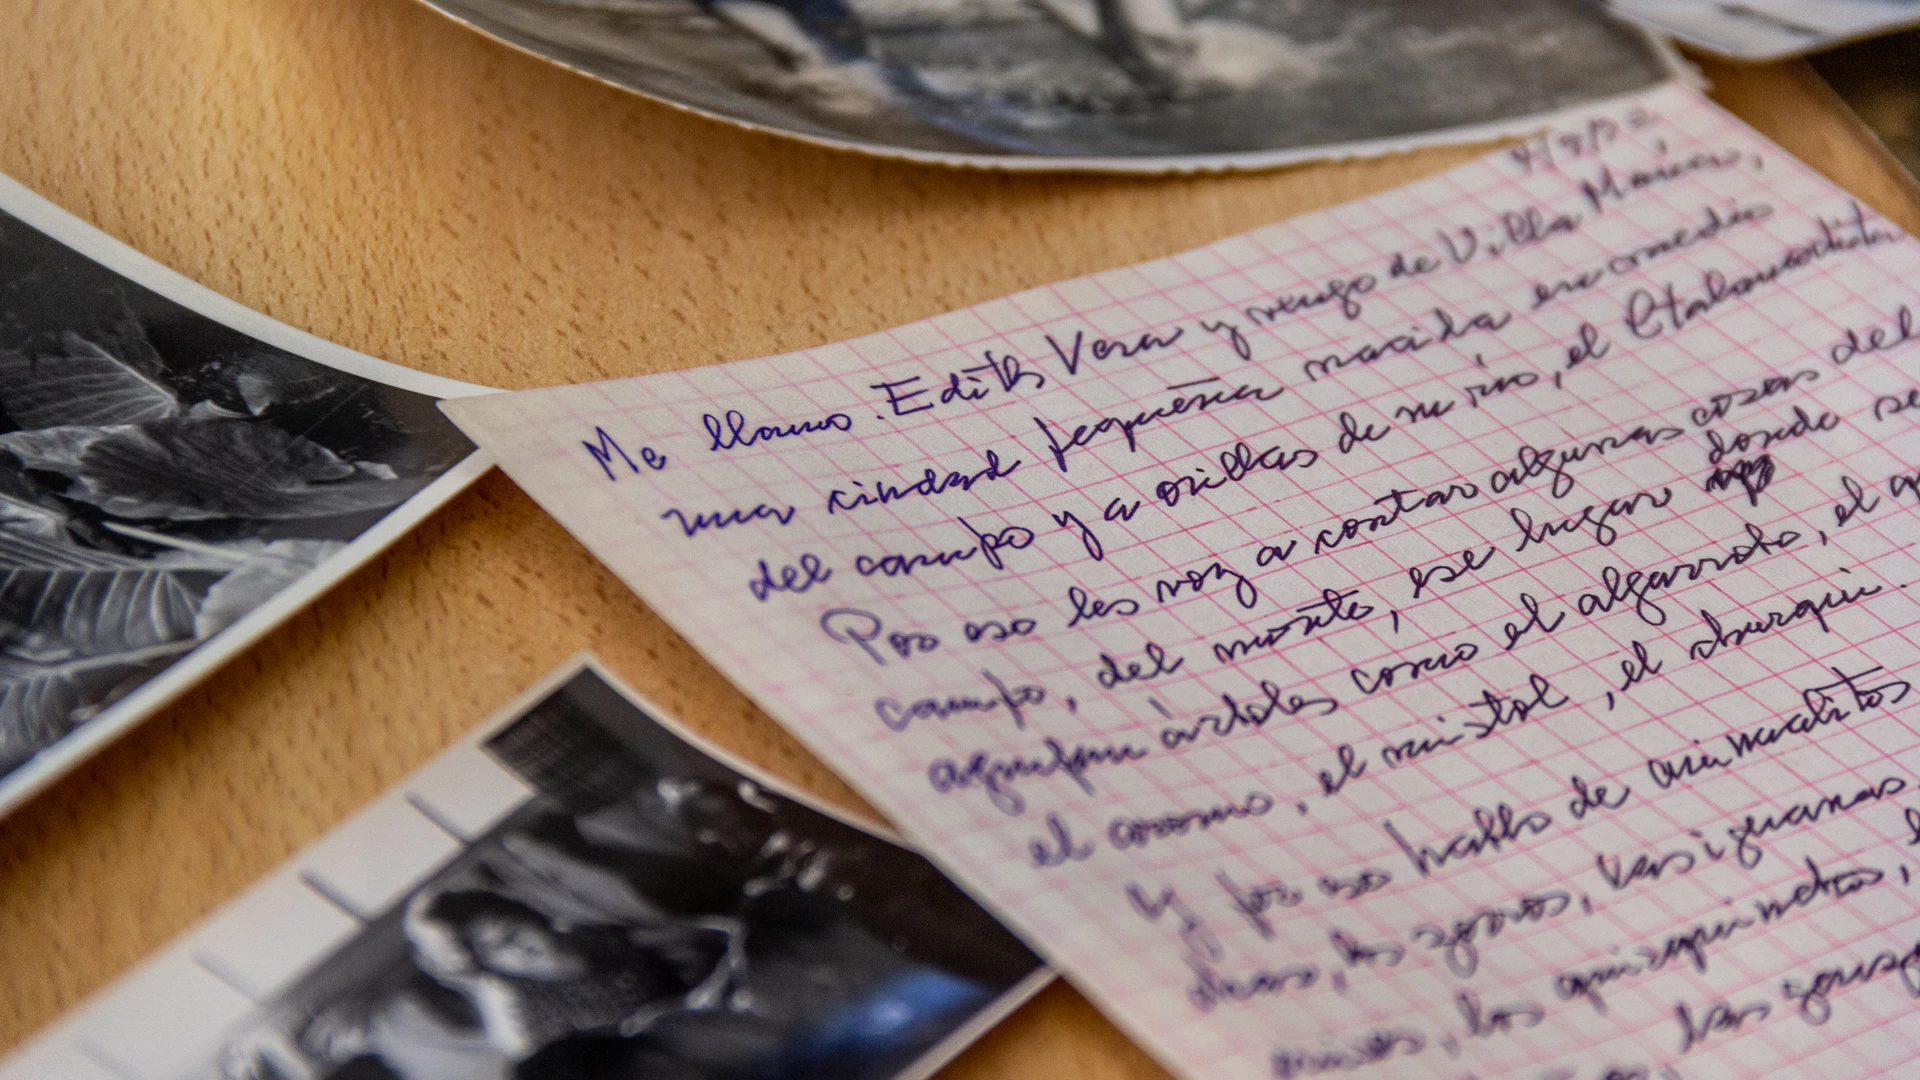 Me llamo Edith Vera y vengo de Villa María,
una ciudad pequeña nacida en medio
del campo y a orillas de un río, el Ctalamochita
Por eso les voy a contar algunas cosas del
campo, del monte, ese lugar donde se
agrupan árboles como el algarrobo, el
el aromo, el mistol, el churqui.
Y por eso hablo de animalitos
los zorros, las iguanas,
los quirquinchos,
las